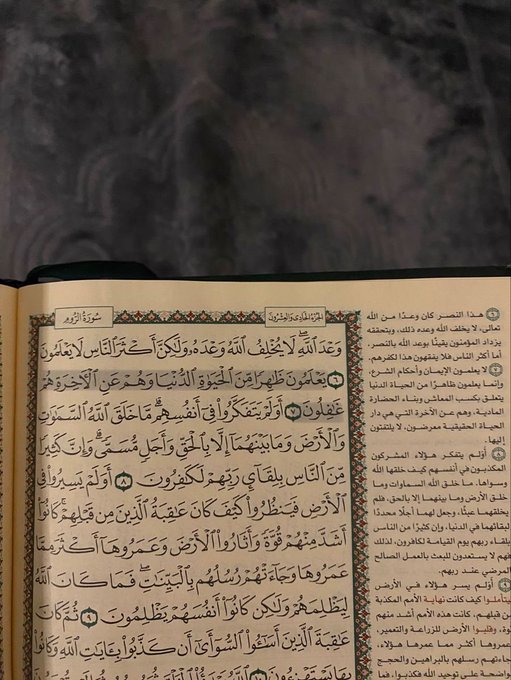 سُورَةُ الرُّومِ
الجُزْءُ الحَادِي وَالعِشْرُونَ
وَعْدَ ٱللَّهِۖ لَا يُخْلِفُ ٱللَّهُ وَعْدَهُۥ وَلَٰكِنَّ أَكْثَرَ ٱلنَّاسِ لَا يَعْلَمُونَ
٦ يَعْلَمُونَ ظَٰهِرًا مِّنَ ٱلْحَيَوٰةِ ٱلدُّنْيَا وَهُمْ عَنِ ٱلْءَاخِرَةِ هُمْ
غَٰفِلُونَ ٧ أَوَلَمْ يَتَفَكَّرُوا۟ فِىٓ أَنفُسِهِمۗ مَّا خَلَقَ ٱللَّهُ ٱلسَّمَٰوَٰتِ
وَٱلْأَرْضَ وَمَا بَيْنَهُمَآ إِلَّا بِٱلْحَقِّ وَأَجَلٍ مُّسَمًّىۗ وَإِنَّ كَثِيرًا
مِّنَ ٱلنَّاسِ بِلِقَآئِ رَبِّهِمْ لَكَٰفِرُونَ ٨ أَوَلَمْ يَسِيرُوا۟ فِى
ٱلْأَرْضِ فَيَنظُرُوا۟ كَيْفَ كَانَ عَٰقِبَةُ ٱلَّذِينَ مِن قَبْلِهِمْۚ كَانُوٓا۟
أَشَدَّ مِنْهُمْ قُوَّةً وَأَثَارُوا۟ ٱلْأَرْضَ وَعَمَرُوهَآ أَكْثَرَ مِمَّا
عَمَرُوهَا وَجَآءَتْهُمْ رُسُلُهُم بِٱلْبَيِّنَٰتِۖ فَمَا كَانَ ٱللَّهُ
لِيَظْلِمَهُمْ وَلَٰكِن كَانُوٓا۟ أَنفُسَهُمْ يَظْلِمُونَ ٩ ثُمَّ كَانَ
عَٰقِبَةَ ٱلَّذِينَ أَسَٰٓـُٔوا۟ ٱلسُّوٓأَىٰٓ أَن كَذَّبُوا۟ بِـَٔايَٰتِ ٱللَّهِ وَكَانُوا۟
بِهَا يَسْتَهْزِءُونَ ١٠
٦ هذا النصر كان وعدًا من الله
تعالى، لا يخلف الله وعده ذلك، وبتحققه
يزداد المؤمنون يقينًا بوعد الله بالنصر،
أما أكثر الناس فلا يفقهون هذا لكفرهم.
٧ لا يعلمون الإيمان وأحكام الشرع،
وإنما يعلمون ظاهرًا من الحياة الدنيا
يتعلق بكسب المعاش وبناء الحضارة
المادية، وهم عن الآخرة التي هي دار
الحياة الحقيقية معرضون، لا يلتفتون
إليها.
٨ أولم يتفكر هؤلاء المشركون
المكذبون في أنفسهم كيف خلقها الله
وسواها. ما خلق الله السماوات وما
خلق الأرض وما بينهما إلا بالحق، فلم
يخلقهما عبثًا، وجعل لهما أجلًا محددًا
لبقائهما في الدنيا، وإن كثيرًا من الناس
بلقاء ربهم يوم القيامة لكافرون، لذلك
فهم لا يستعدون للبعث بالعمل الصالح
المرضي عند ربهم.
٩ أولم يسر هؤلاء في الأرض
ليتأملوا كيف كانت نهاية الأمم المكذبة
من قبلهم، كانت هذه الأمم أشد منهم
قوة، وقلبوا الأرض للزراعة والتعمير،
وعمروها أكثر مما عمرها هؤلاء،
وجاءتهم رسلهم بالبراهين والحجج
الواضحة على توحيد الله فكذبوا، فما